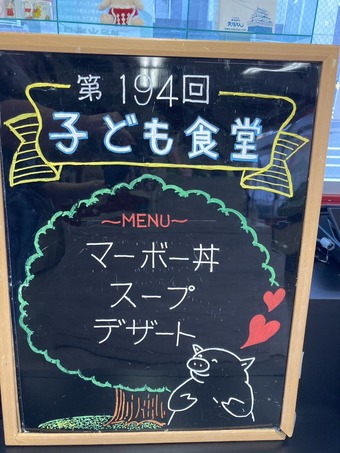 第194回
子ども食堂
～MENU～
マーボー丼
スープ
デザート